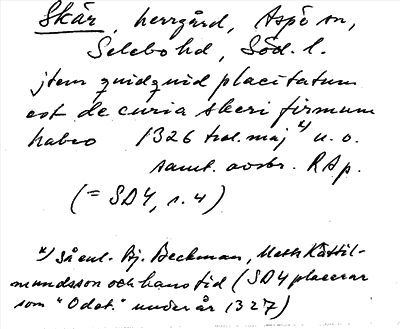 Skär, herrgård, Aspö sn,
Selebo hd, Söd. l.
jtem quidquid placitatum
est de curia skeri firmum
habeo 1326 trol. maj x) u. o.
samt. avskr. RAp.
(= SD4, s. 4)
x) Så enl. Bj. Beckman, Mats Kättil-
mundsson och hans tid (SD4 placerar
som "Odat." under år 1327)